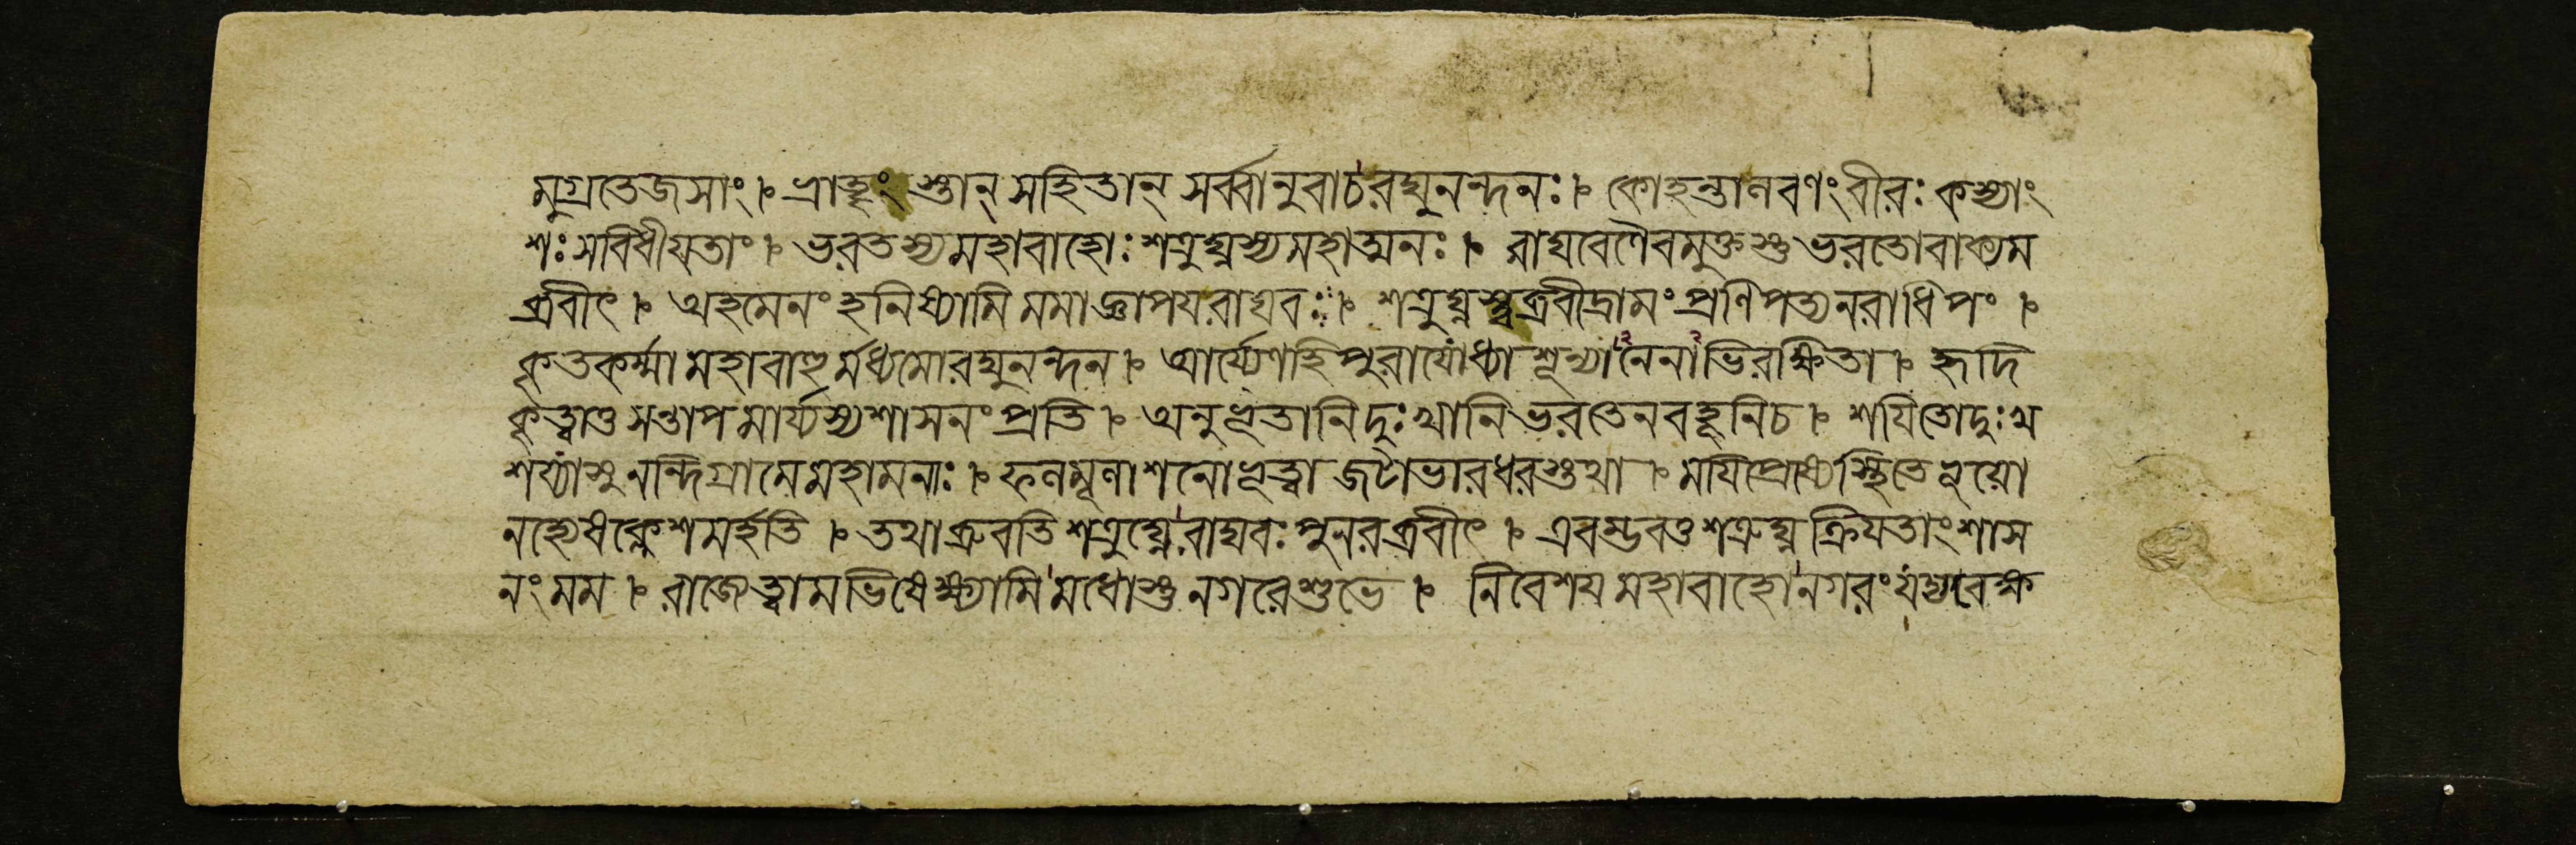 মুগ্রতেজসাং । ভ্রাতৄংস্তান্ সহিতান্ সর্ব্বানুবাচ রঘুনন্দনঃ । কোহন্তা লবণং বীরঃ কস্যাং
শঃ স বিধীয়তাং । ভরতস্য মহাবাহোঃ শত্রুঘ্নস্য মহাত্মনঃ । রাঘবেণৈবমুক্তস্তু ভরতো বাক্যম
ব্রবীৎ । অহমেনং হনিষ্যামি মমাজ্ঞাপয় রাঘবঃ । শত্রুঘ্নস্ত্বব্রবীদ্রামং প্রণিপত্য নরাধিপং ।
কৃতকর্ম্মা মহাবাহুর্মধ্যমো রঘুনন্দন । আর্য্যেণ হি পুরাযোধ্যা শূন্যা নৈনাভিরক্ষিতা । হৃদি
কৃত্বাত্ত সন্তাপমার্য্যস্য শাসনং প্রতি । অনুভূতানি দুঃখানি ভরতেন বহূনি চ । শয়িতো দুঃখ
শয্যাসু নন্দিগ্রামে মহামনাঃ । ফলমূলাশনো ভূত্বা জটাভারধরস্তথা । ময়ি প্রেষ্যে স্থিতে ভূয়ো
নহ্যেষ ক্লেশমর্হতি । তথা ব্রুবতি শত্রুঘ্নে রাঘবঃ পুনরব্রবীৎ । এবম্ভবতু শত্রুঘ্ন ক্রিয়তাং শাস
নং মম । রাজ্যে ত্বামভিষেক্ষ্যামি মধোস্তু নগরে শুভে । নিবেশয় মহাবাহো নগরং যদ্যবেক্ষ